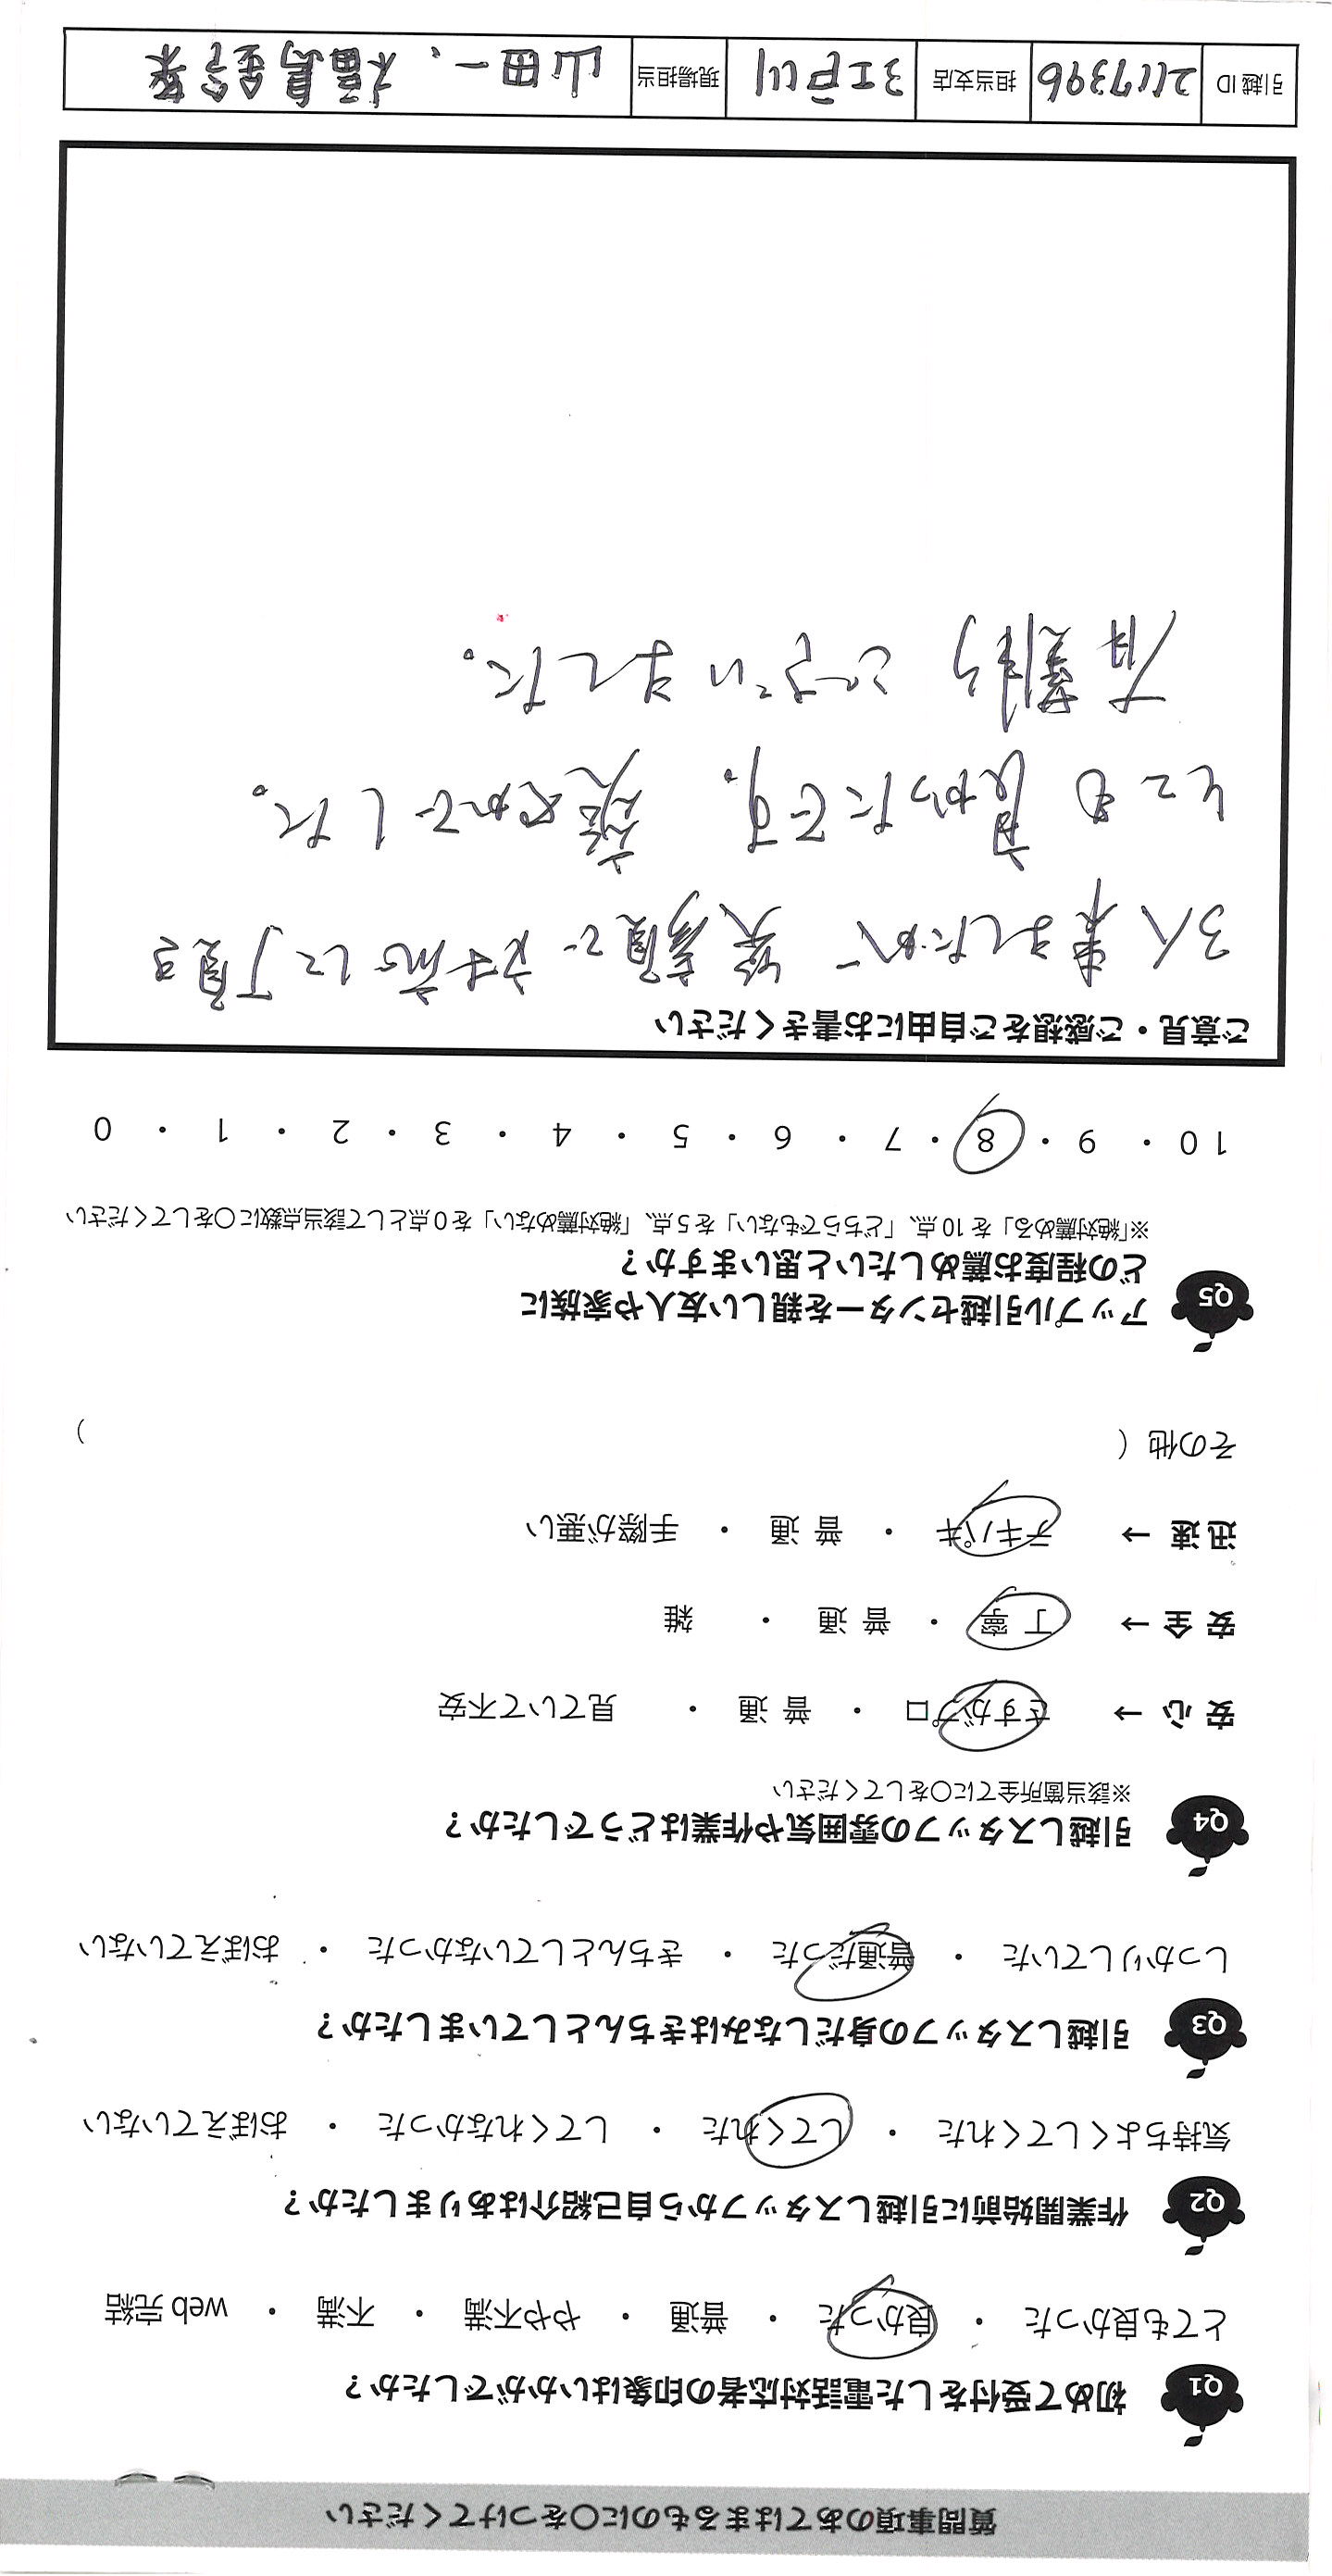 質問事項のあてはまるものに○をつけてください
Q1 初めて受付をした電話対応者の印象はいかがでしたか?
とても良かった ・ 良かった ・ 普通 ・ やや不満 ・ 不満 ・ web 完結
Q2 作業開始前に引越しスタッフから自己紹介はありましたか?
気持ちよくしてくれた ・ してくれた ・ してくれなかった ・ おぼえていない
Q3 引越しスタッフの身だしなみはきちんとしていましたか?
しっかりしていた ・ 普通だった ・ きちんとしていなかった ・ おぼえていない
Q4 引越しスタッフの雰囲気や作業はどうでしたか?
※該当箇所全てに○をしてください
安 心 → さすがプロ ・ 普 通 ・ 見ていて不安
安 全 → 丁 寧 ・ 普 通 ・ 雑
迅 速 → テキパキ ・ 普 通 ・ 手際が悪い
その他 ( )
Q5 アップル引越センターを親しい友人や家族に
どの程度お薦めしたいと思いますか?
※「絶対薦める」を 10 点、「どちらでもない」を 5 点、「絶対薦めない」を 0 点として該当点数に○をしてください
10 ・ 9 ・ 8 ・ 7 ・ 6 ・ 5 ・ 4 ・ 3 ・ 2 ・ 1 ・ 0
ご意見・ご感想をご自由にお書きください
3人来ましたが 笑顔で 対応して頂き
とても 良かったです。 爽やかでした。
有難う ございました。
引越 ID 2117396 担当支店 江戸川 現場担当 山田一、福島